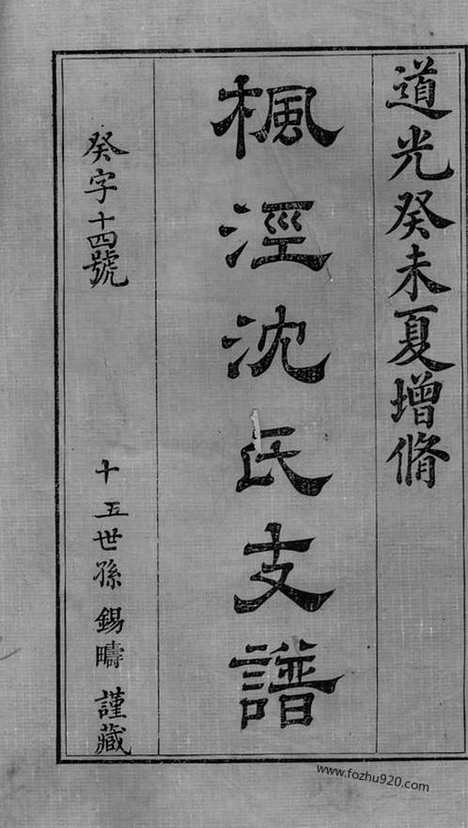 道光癸未夏增脩
楓涇沈氏支譜
癸字十四號
十五世孫錫疇謹藏
www.fozhu920.com